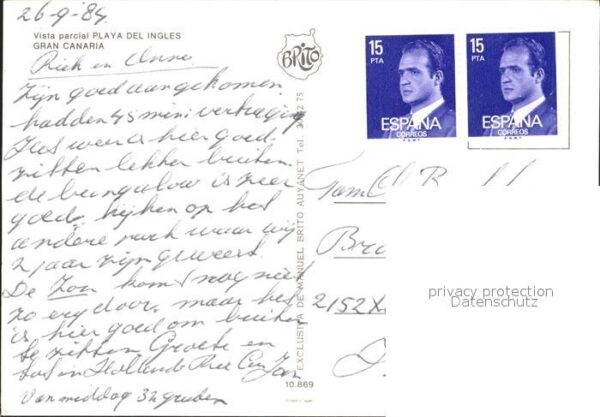 26-9-84
Vista parcial PLAYA DEL INGLES
GRAN CANARIA
Riek en Anne
Zijn goed aangekomen
hadden 45 min vertraging
weer is hier goed
zitten lekker buiten.
de bungalow is zeer
goed, kijken op het
andere park waar wij
2 jaar zijn geweest.
De Zon komt nog niet
zo erg door, maar het
is hier goed om buiten
te zitten. Groete en
tot in Hollande Jan
Van middag 32 graden
BRITO
EXCLUSIVA DE MANUEL BRITO AUYANET Tel.
10.869
15
PTA
ESPAÑA
CORREOS
15
PTA
ESPAÑA
CORREOS
Fam
2152
privacy protection
Datenschutz